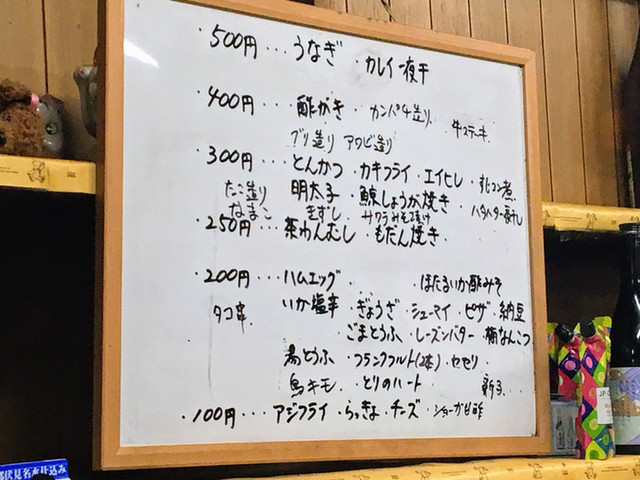 ・500円…うなぎ ・カレイ一夜干
・400円…酢がき・カンパチ造り・牛ステーキ
ブリ造り アワビ造り
・300円…とんかつ・カキフライ・エイヒレ・すじコン煮
たこ造り 明太子・鯨しょうが焼き・ハタハタ一夜干し
なまこ きずし サワラみそ漬け
・250円…茶わんむし・もだん焼き
・200円…ハムエッグ・ ・ほたるいか酢みそ
タコ いか塩辛・ぎょうざ・シューマイ・ピザ・納豆
・ごまとうふ・レーズンバター・梅なんこつ
湯とうふ・フランクフルト(2本)・セセリ
鳥キモ・とりのハート・新子
・100円…アジフライ・らっきょ・チーズ・ショーガ甘酢
都伏見名水仕込み